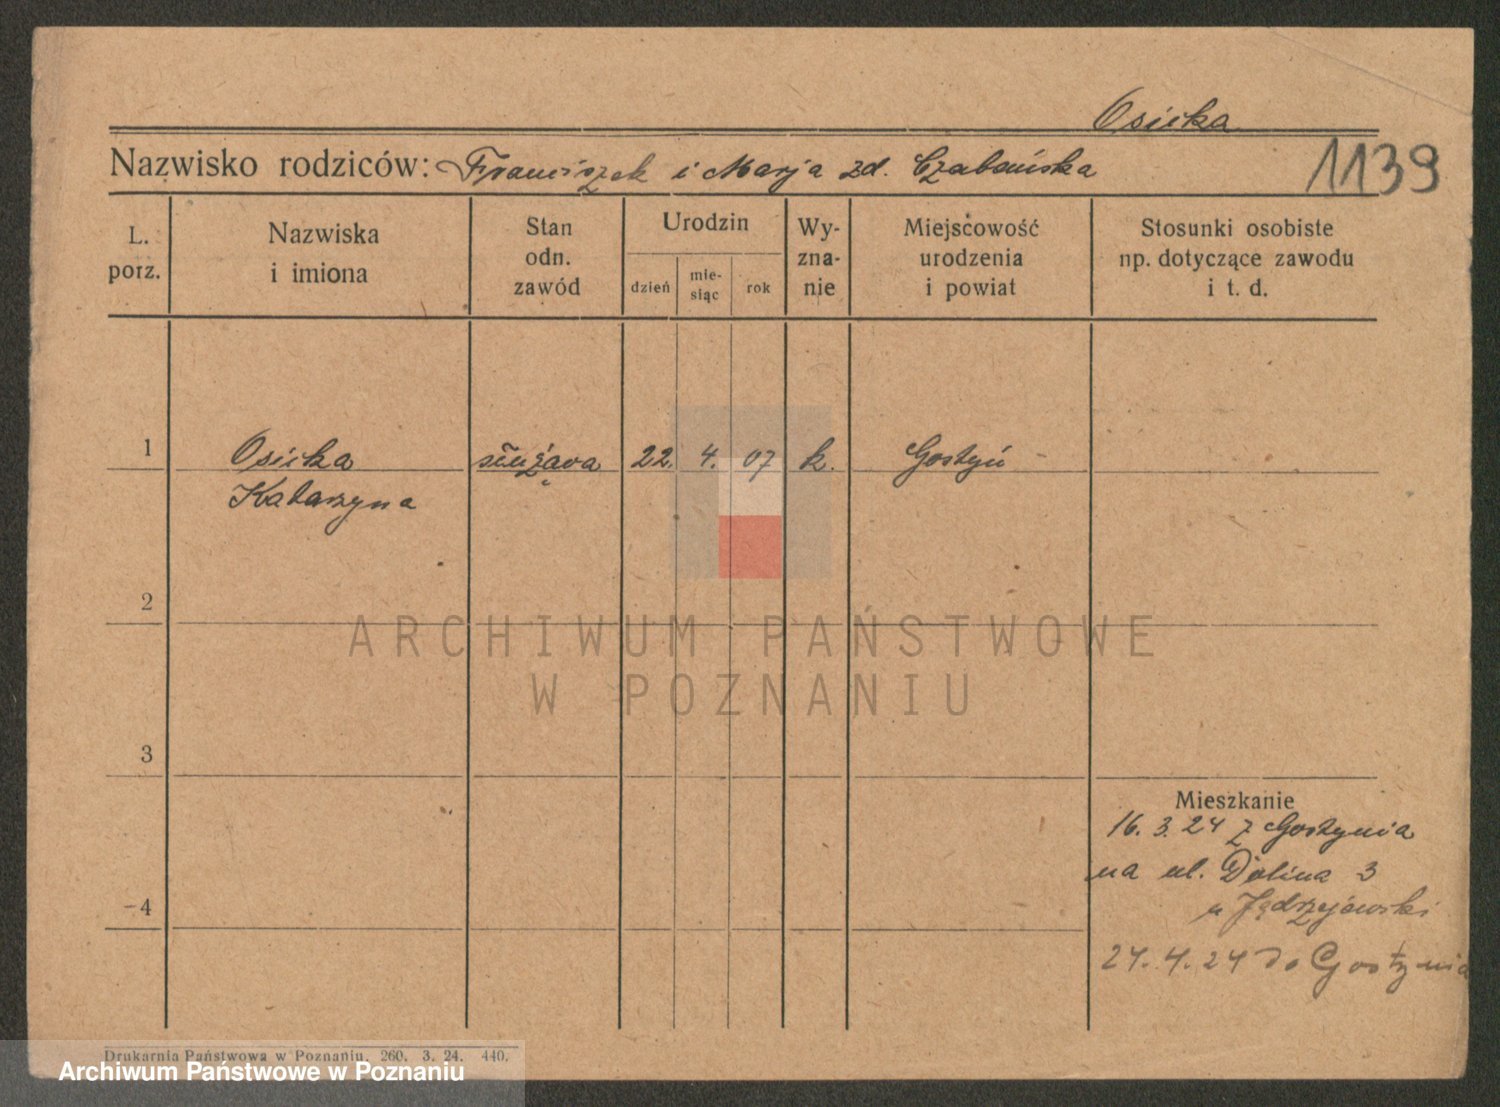 Osicka
Nazwisko rodziców: Franciszek i Marja zd. Czabańska
1139
L. porz.
Nazwiska i imiona
Stan odn. zawód
Urodzin
dzień
mie-siąc
rok
Wy-zna-nie
Miejscowość urodzenia i powiat
Stosunki osobiste np. dotyczące zawodu i t. d.
1 Osicka służąca 22. 4. 07 k. Gostyń
Katarzyna
2
ARCHIWUM PAŃSTWOWE
W POZNANIU
3
Mieszkanie
16. 3. 24 z Gostynia
na ul. Dolina 3
u Jędrzejewski
4
24. 4. 24 do Gostynia
Drukarnia Państwowa w Poznaniu. 260. 3. 24. 440.
Archiwum Państwowe w Poznaniu